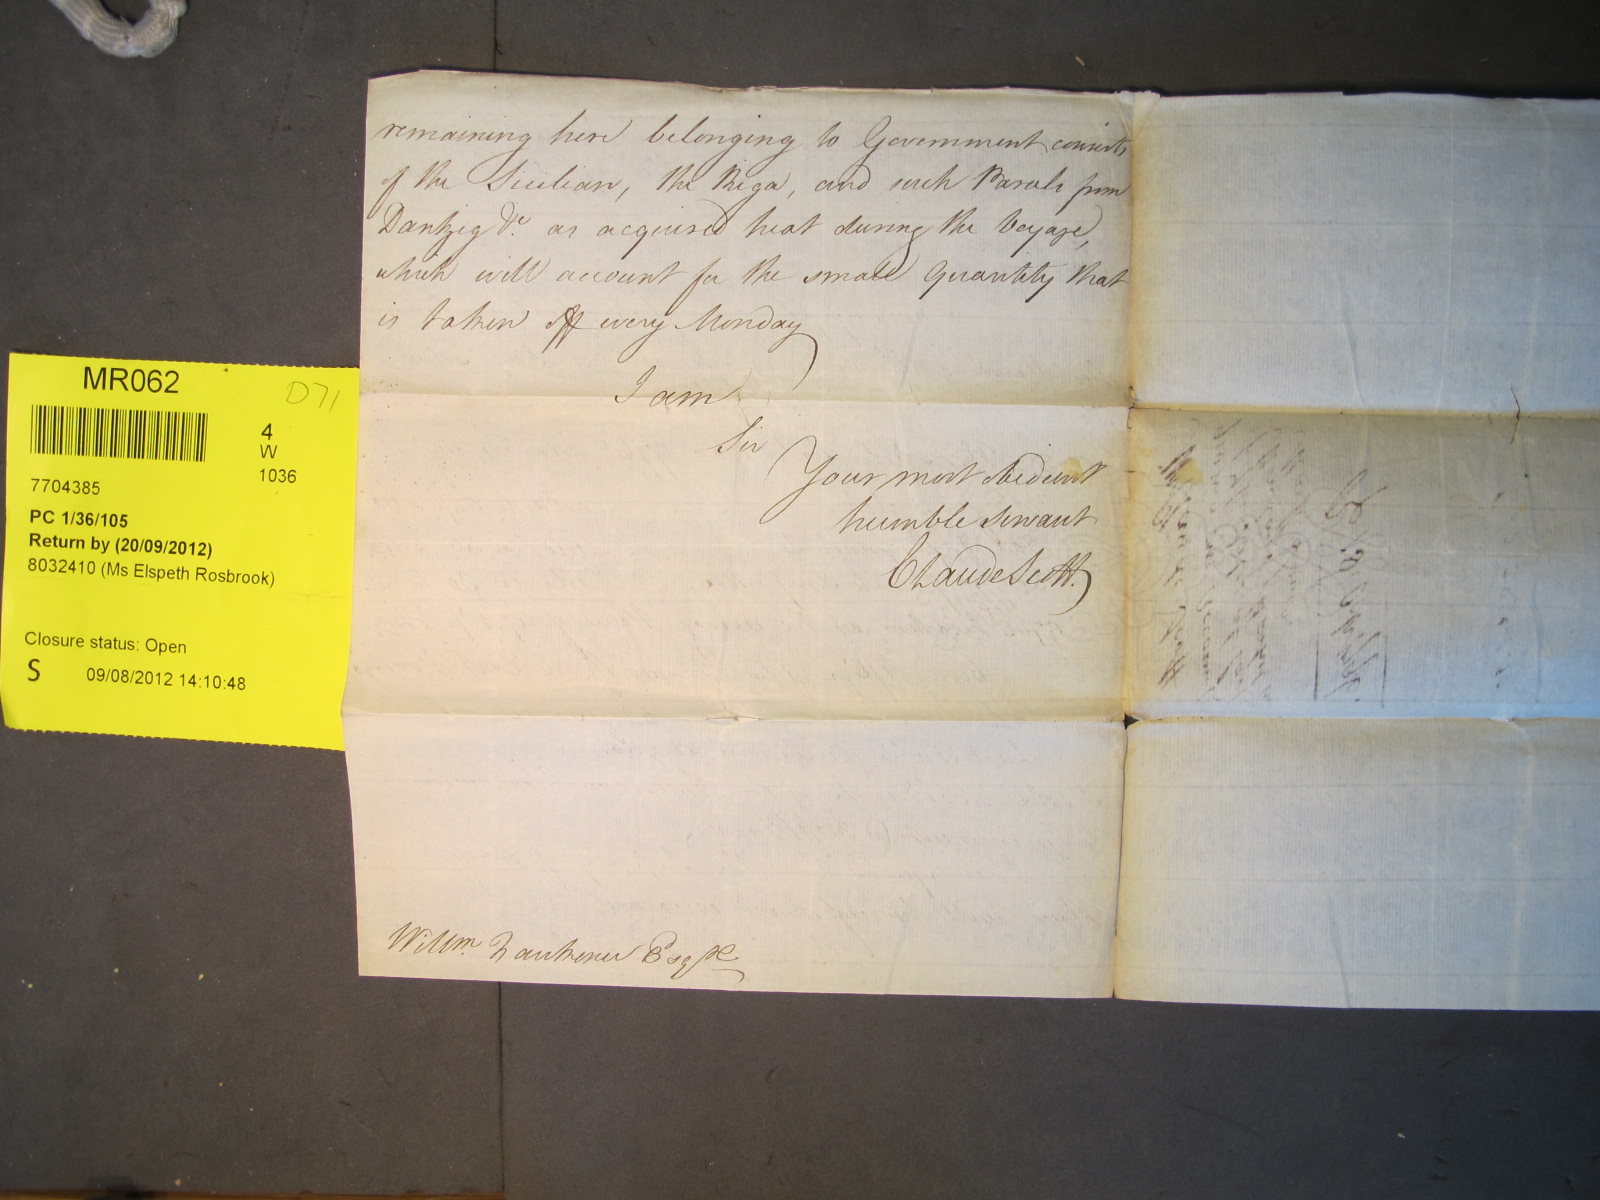 remaining here belonging to Government consists
of the Sicilian, the Riga, and such Parcels from
Dantzig &c. as acquired heat during the Voyage,
which will account for the small Quantity that
is taken off every Monday
I am
Sir
Your most obedient
humble Servant
Claude Scott.
Willm. Fawkener Esqre
MR062
D71
4
W
1036
7704385
PC 1/36/105
Return by (20/09/2012)
8032410 (Ms Elspeth Rosbrook)
Closure status: Open
S 09/08/2012 14:10:48